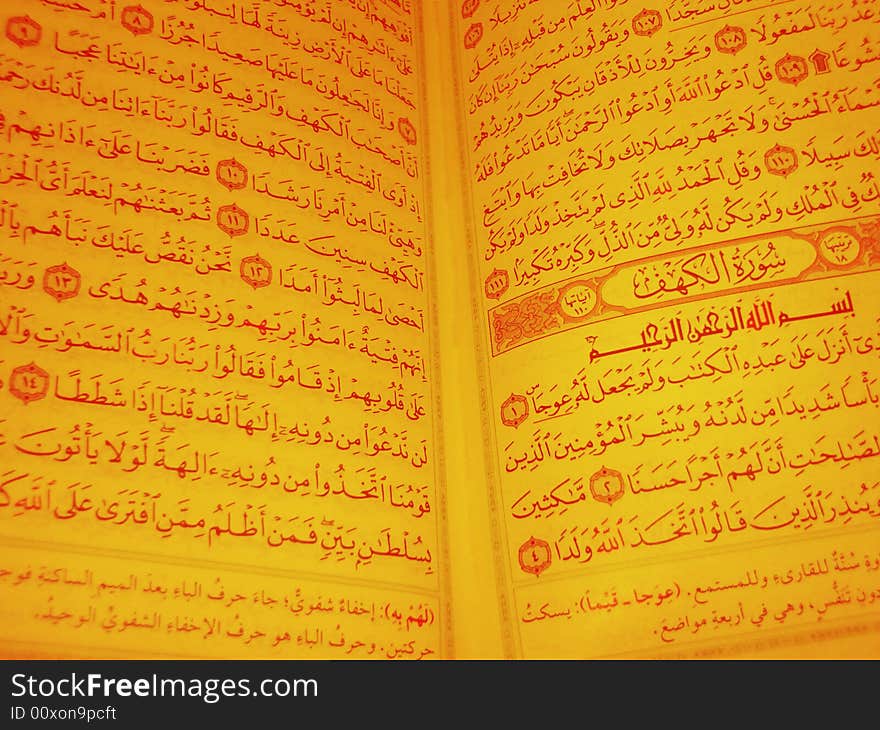 سُجَّدًا ١٠٧ وَيَقُولُونَ سُبْحَٰنَ رَبِّنَآ إِن كَانَ
وَعْدُ رَبِّنَا لَمَفْعُولًا ١٠٨ وَيَخِرُّونَ لِلْأَذْقَانِ يَبْكُونَ وَيَزِيدُهُمْ
١٠٩ قُلِ ٱدْعُوا۟ ٱللَّهَ أَوِ ٱدْعُوا۟ ٱلرَّحْمَٰنَ ۖ أَيًّا مَّا تَدْعُوا۟ فَلَهُ
ٱلْحُسْنَىٰ ۚ وَلَا تَجْهَرْ بِصَلَاتِكَ وَلَا تُخَافِتْ بِهَا وَٱبْتَغِ
سَبِيلًا ١١٠ وَقُلِ ٱلْحَمْدُ لِلَّهِ ٱلَّذِى لَمْ يَتَّخِذْ وَلَدًا وَلَمْ يَكُن
فِى ٱلْمُلْكِ وَلَمْ يَكُن لَّهُۥ وَلِىٌّ مِّنَ ٱلذُّلِّ ۖ وَكَبِّرْهُ تَكْبِيرًۢا ١١١
ترتيبها ١٨ سُورَةُ الكَهْفِ آياتها ١١٠
بِسْمِ ٱللَّهِ ٱلرَّحْمَٰنِ ٱلرَّحِيمِ
أَنزَلَ عَلَىٰ عَبْدِهِ ٱلْكِتَٰبَ وَلَمْ يَجْعَل لَّهُۥ عِوَجَا ۜ ١
بَأْسًا شَدِيدًا مِّن لَّدُنْهُ وَيُبَشِّرَ ٱلْمُؤْمِنِينَ ٱلَّذِينَ
ٱلصَّٰلِحَٰتِ أَنَّ لَهُمْ أَجْرًا حَسَنًا ٢ مَّٰكِثِينَ
وَيُنذِرَ ٱلَّذِينَ قَالُوا۟ ٱتَّخَذَ ٱللَّهُ وَلَدًا ٤
سُنَّةٌ للقارىءِ وللمستمعِ. (عِوَجا ـ قَيِّماً): يسكتُ
دون تَنَفُّسٍ، وهي في أربعةِ مواضعَ.
جَعَلْنَا مَا عَلَى ٱلْأَرْضِ زِينَةً لَّهَا لِنَبْلُوَهُمْ ٧
وَإِنَّا لَجَٰعِلُونَ مَا عَلَيْهَا صَعِيدًا جُرُزًا ٨ أَمْ حَسِبْتَ
أَنَّ أَصْحَٰبَ ٱلْكَهْفِ وَٱلرَّقِيمِ كَانُوا۟ مِنْ ءَايَٰتِنَا عَجَبًا ٩
إِذْ أَوَى ٱلْفِتْيَةُ إِلَى ٱلْكَهْفِ فَقَالُوا۟ رَبَّنَآ ءَاتِنَا مِن لَّدُنكَ رَحْمَةً
وَهَيِّئْ لَنَا مِنْ أَمْرِنَا رَشَدًا ١٠ فَضَرَبْنَا عَلَىٰٓ ءَاذَانِهِمْ فِى
ٱلْكَهْفِ سِنِينَ عَدَدًا ١١ ثُمَّ بَعَثْنَٰهُمْ لِنَعْلَمَ أَىُّ ٱلْحِزْبَيْنِ
أَحْصَىٰ لِمَا لَبِثُوٓا۟ أَمَدًا ١٢ نَّحْنُ نَقُصُّ عَلَيْكَ نَبَأَهُم
إِنَّهُمْ فِتْيَةٌ ءَامَنُوا۟ بِرَبِّهِمْ وَزِدْنَٰهُمْ هُدًى ١٣ وَرَبَطْنَا
عَلَىٰ قُلُوبِهِمْ إِذْ قَامُوا۟ فَقَالُوا۟ رَبُّنَا رَبُّ ٱلسَّمَٰوَٰتِ
لَن نَّدْعُوَا۟ مِن دُونِهِۦٓ إِلَٰهًا ۖ لَّقَدْ قُلْنَآ إِذًا شَطَطًا ١٤
قَوْمُنَا ٱتَّخَذُوا۟ مِن دُونِهِۦٓ ءَالِهَةً ۖ لَّوْلَا يَأْتُونَ
بِسُلْطَٰنٍۭ بَيِّنٍ ۖ فَمَنْ أَظْلَمُ مِمَّنِ ٱفْتَرَىٰ عَلَى ٱللَّهِ
(لَهُمْ بِهِ): إخفاءٌ شفويٌّ؛ جاءَ حرفُ الباءِ بعدَ الميمِ الساكنةِ
حركتينِ. وحرفُ الباءِ هو حرفُ الإخفاءِ الشفويِّ الوحيدُ.
StockFreeImages.com
ID 00xon9pcft